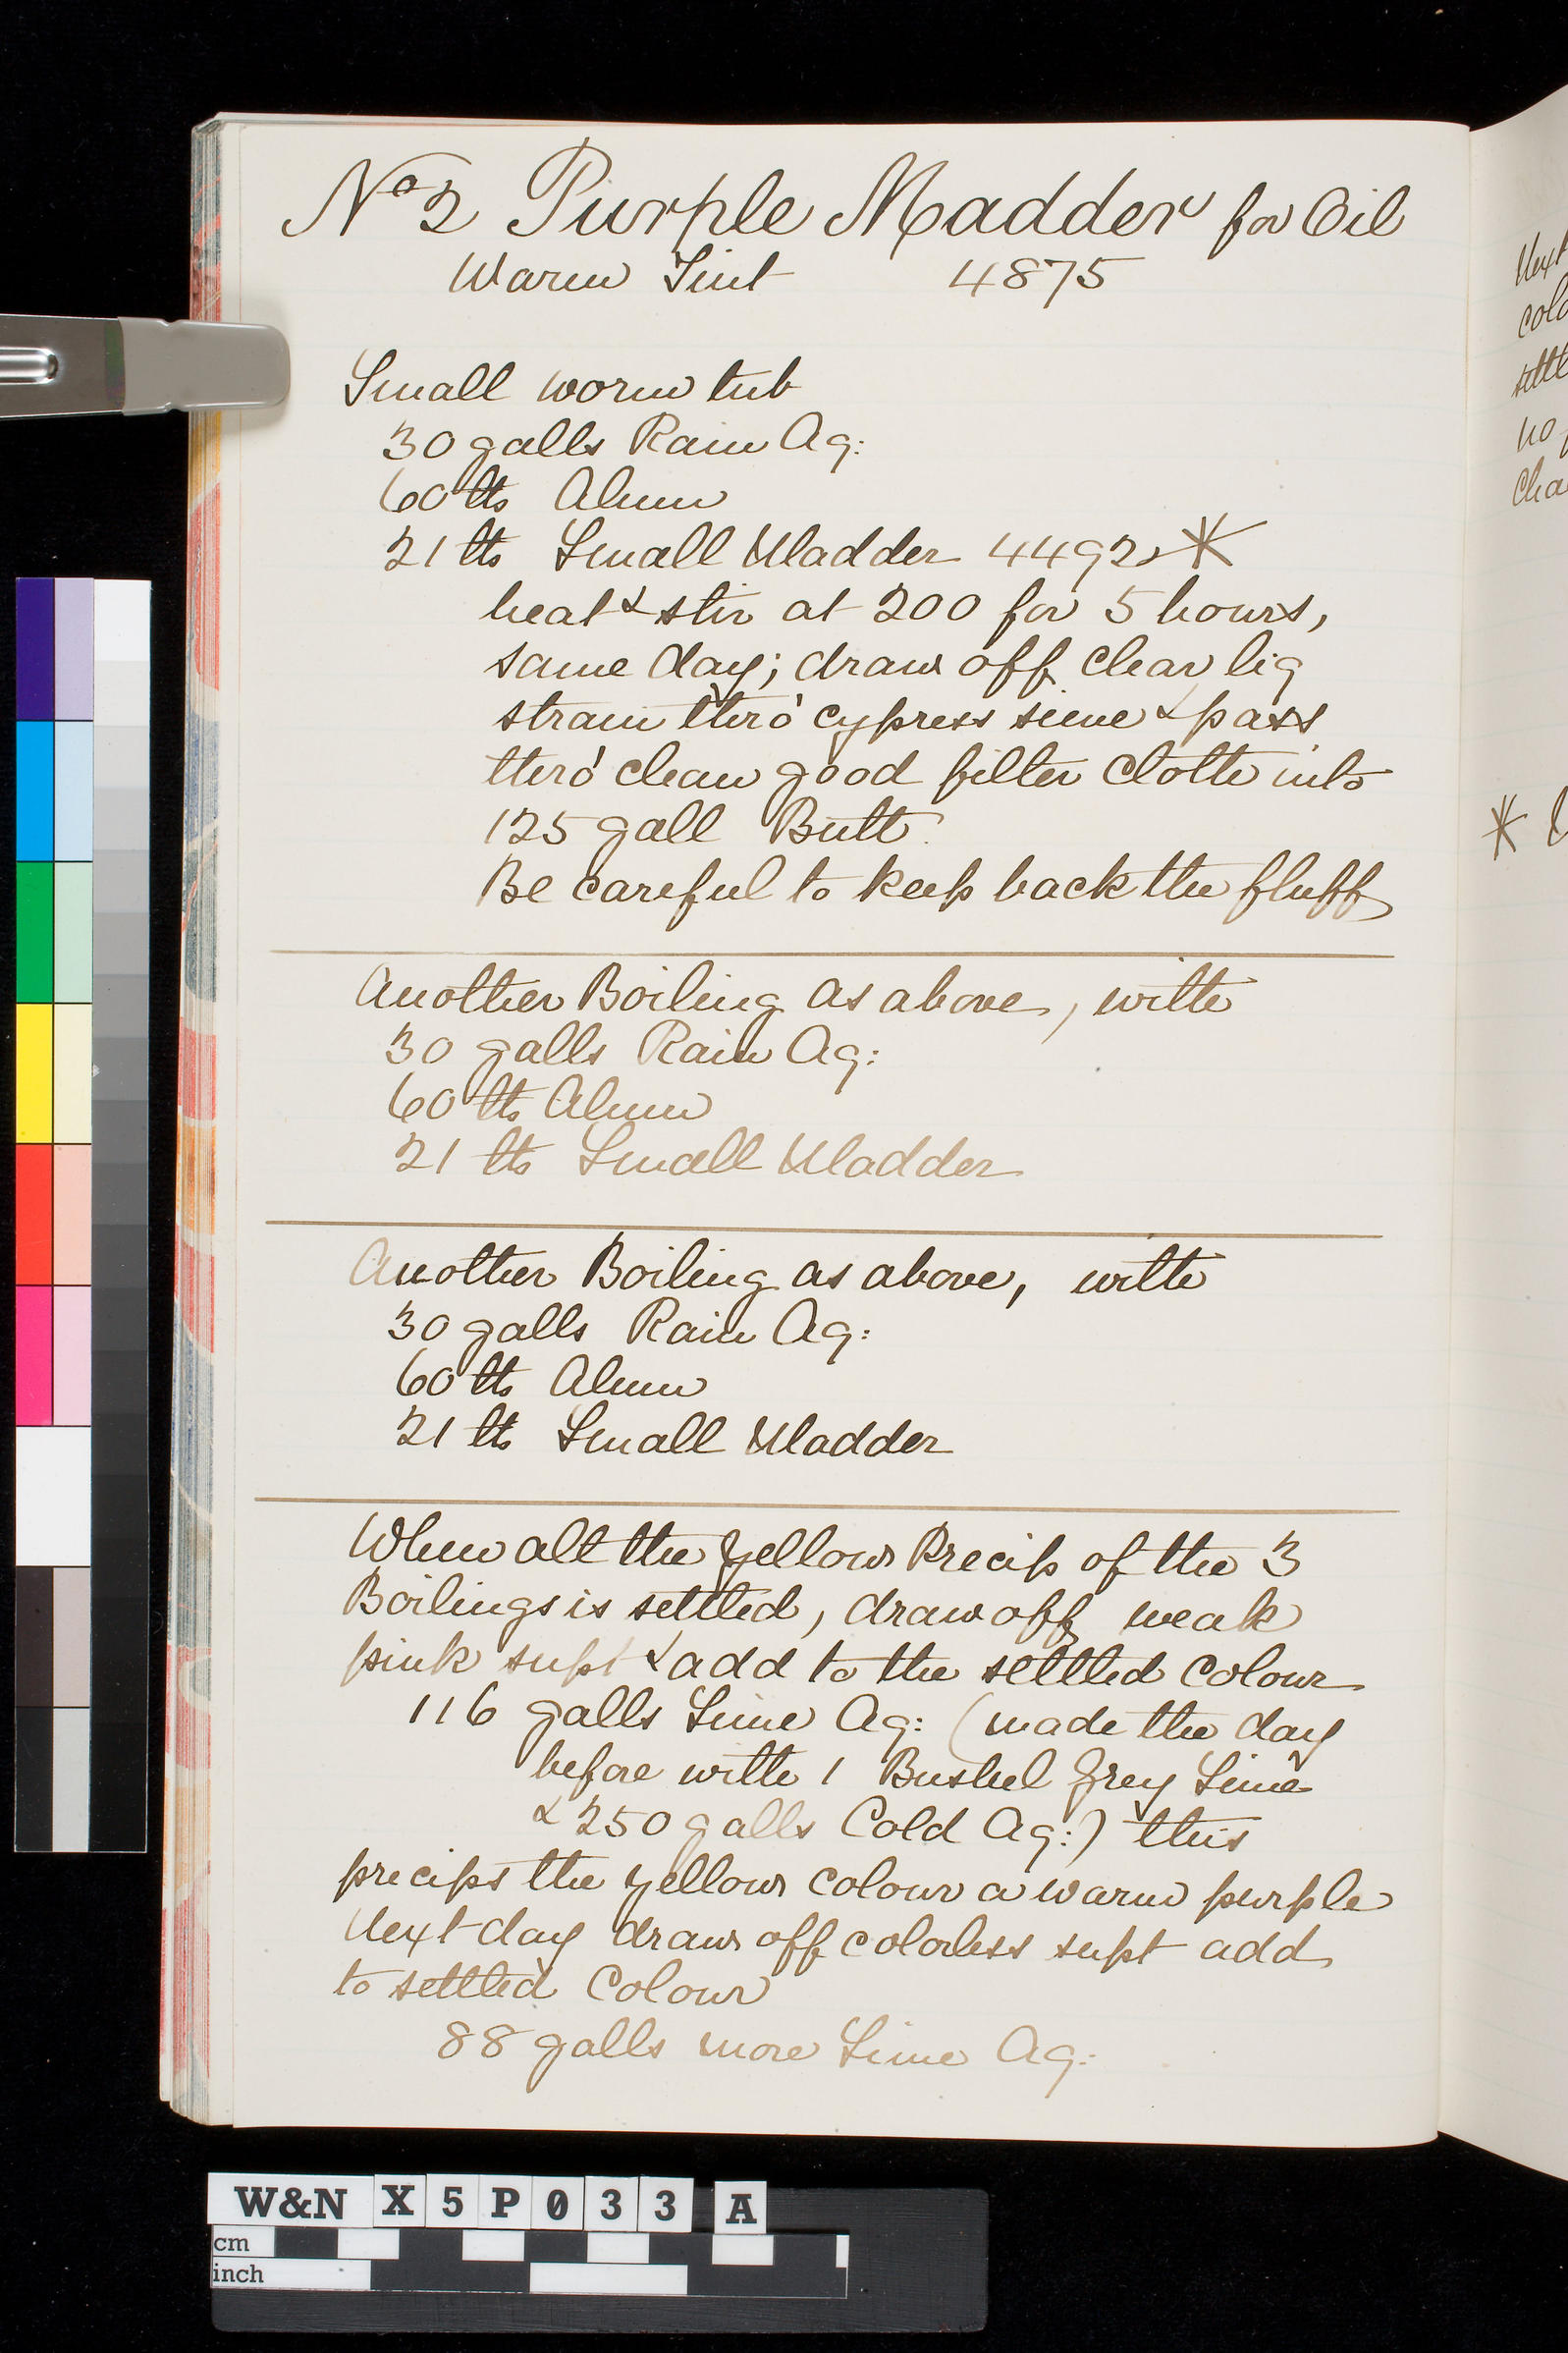 No 2 Purple Madder for Oil
Warm Tint 4875
Small worm tub
30 galls Rain Aq:
60 lbs Alum
21 lbs Small Madder 4492 *
heat & stir at 200 for 5 hours,
same day; draw off clear liq
strain thro' cypress sieve & pass
thro' clean good filter cloth into
125 gall Butt.
Be careful to keep back the fluff
Another Boiling as above, with
30 galls Rain Aq:
60 lbs Alum
21 lbs Small Madder
Another Boiling as above, with
30 galls Rain Aq:
60 lbs Alum
21 lbs Small Madder
When all the yellow Precip of the 3
Boilings is settled, draw off weak
pink supt & add to the settled colour
116 galls Lime Aq: (made the day
before with 1 Bushel Grey Lime
& 250 galls Cold Aq:) this
precips the yellow colour a warm purple
Next day draw off colorless supt add
to settled Colour
88 galls more Lime Aq:
Next
settle
no
*
W&N X5P033 A
cm
inch